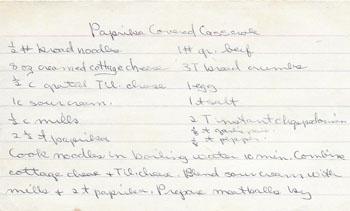 Paprika Covered Casserole
1/2 # broad noodles 1# gr. beef
8 oz creamed cottage cheese 3T bread crumbs
1/2 c grated Til. cheese 1 egg
1c sour cream 1 t salt
1/2 c milk 2 T instant chopped onion
2 1/2 t paprika 1/8 t pepper
Cook noodles in boiling water 10 min. Combine
cottage cheese + Til. cheese. Blend sour cream with
milk + 2 t paprika. Prepare meatballs by